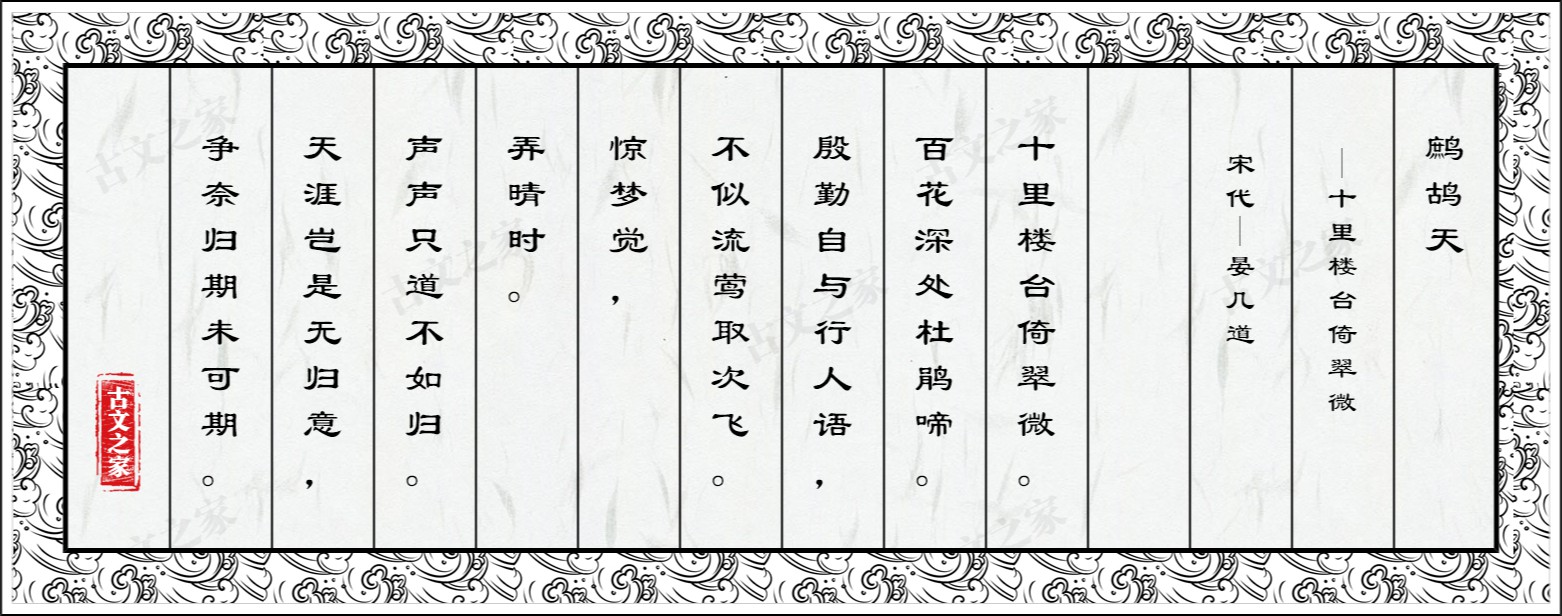 鹧鸪天
—十里楼台倚翠微
宋代—晏几道
十里楼台倚翠微。
百花深处杜鹃啼。
殷勤自与行人语，
不似流莺取次飞。
惊梦觉，
弄晴时。
声声只道不如归。
天涯岂是无归意，
争奈归期未可期。
古文之家